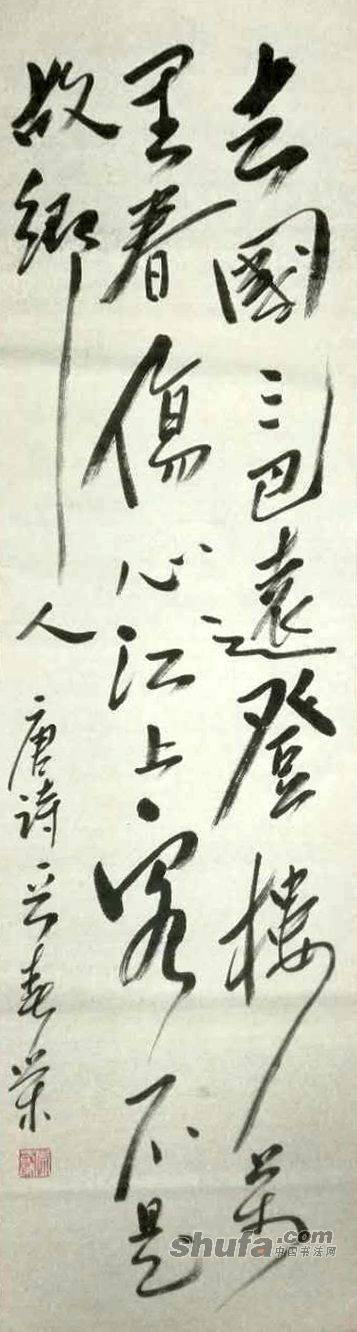 去國三巴遠登樓萬
里春傷心江上客不是
故鄉人
唐詩
shufa.com
中国书法网